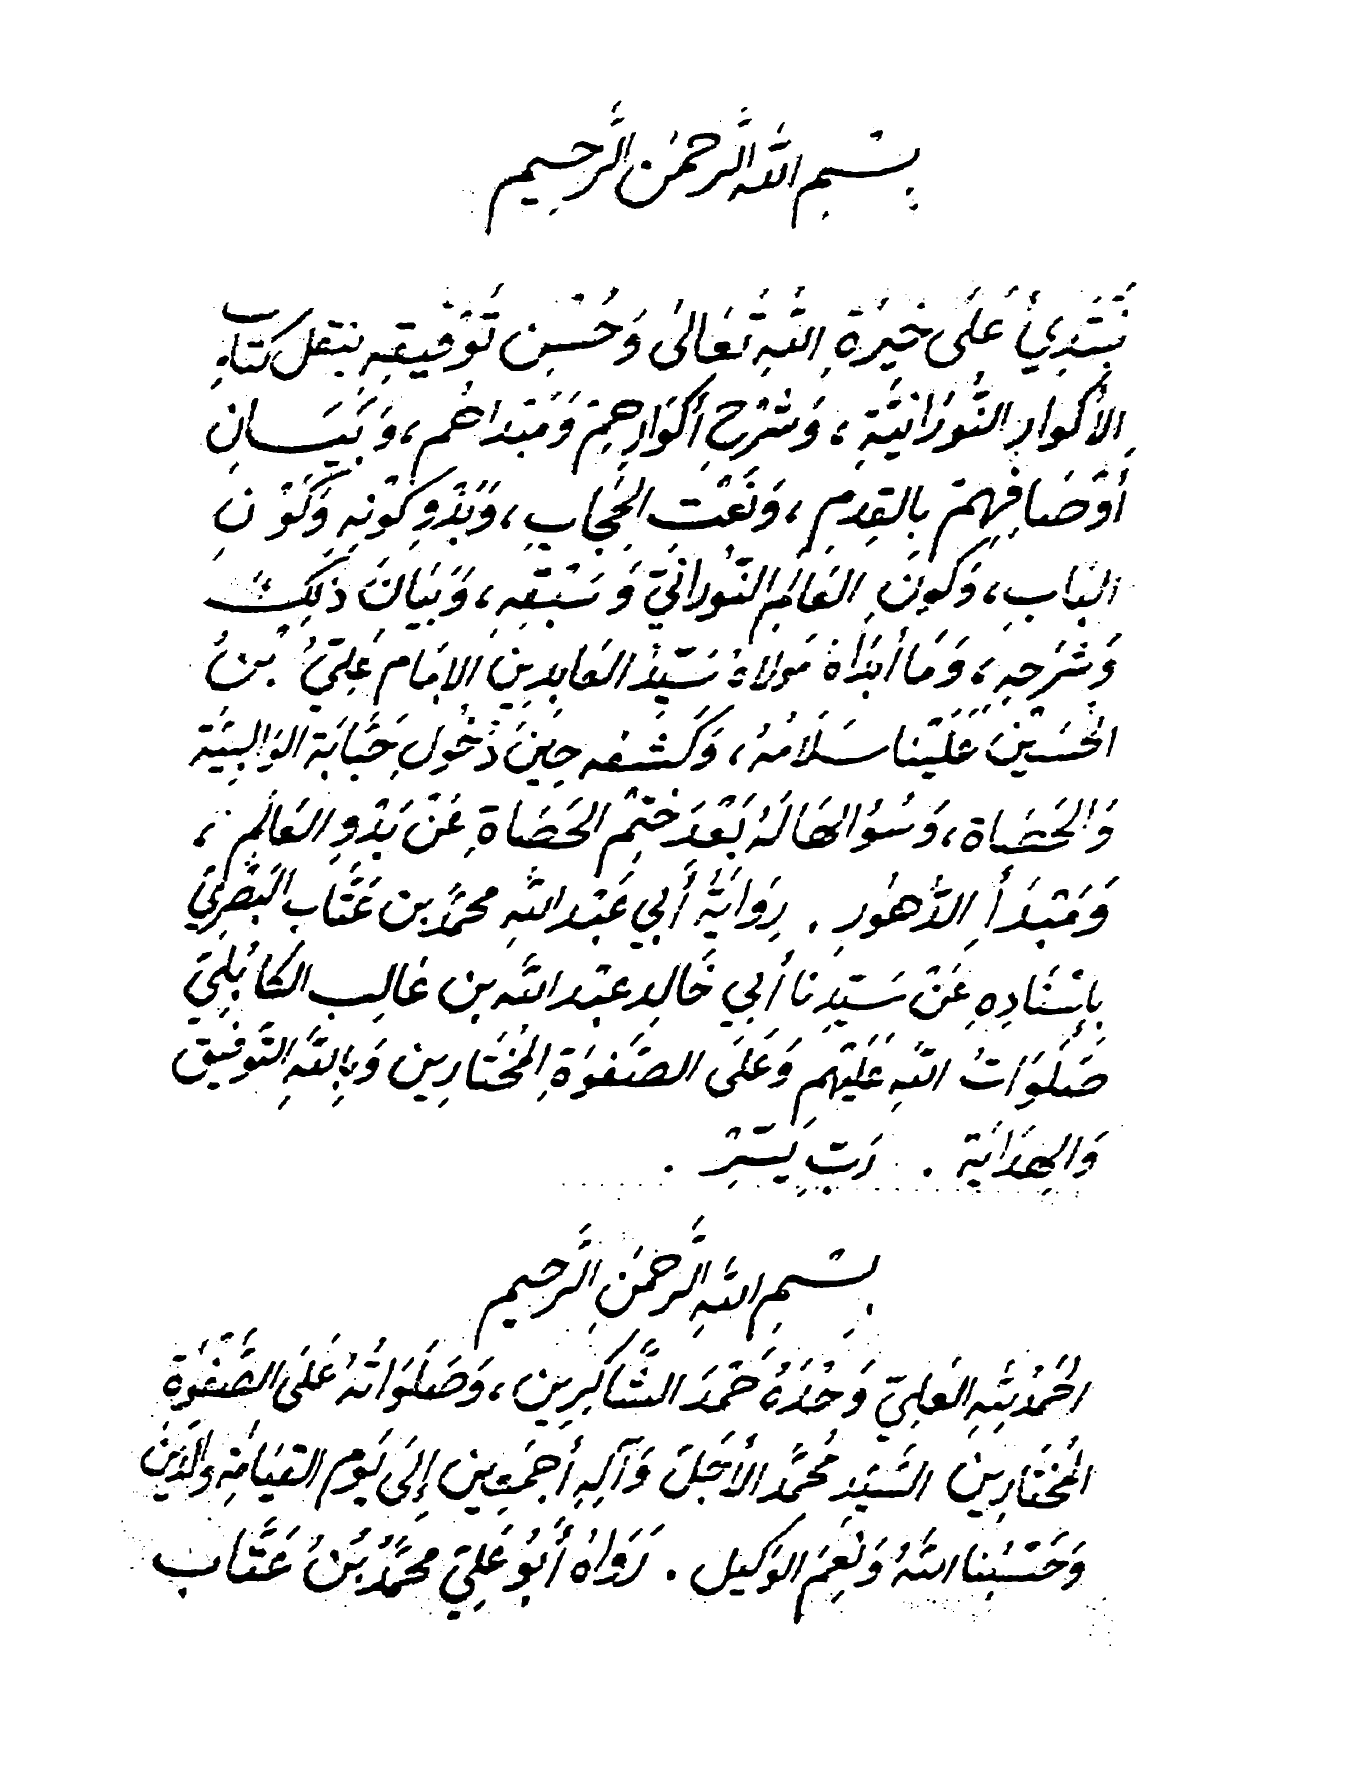 بِسْمِ اللهِ الرَّحمٰنِ الرَّحِيمِ
نَبْتَدِئُ عَلَى خِيَرَةِ اللهِ تَعَالَى وَحُسْنِ تَوْفِيقِهِ بِنَقْلِ كِتَابِ
الأَكْوَارِ النُّورَانِيَّةِ ، وَشَرْحِ أَكْوَارِهِمْ وَمَبْدَاهُم ، وَبَيَانِ
أَوْصَافِهِمْ بِالقِدَمِ ، وَنَعْتِ الحِجَابِ ، وَبَدْوِ كَوْنِهِ وَكَوْنِ
البَابِ ، وَكَوْنِ العَالَمِ النُّورَانِيِّ وَسَبْقِهِ ، وَبَيَانِ ذَلِكَ
وَشَرْحِهِ ، وَمَا أَبْدَاهُ مَولاهُ سَيِّدُ العَابِدِينَ الإمَام عَلِيُّ بْنُ
الحُسَيْنِ عَلَيْنا سَلَامُهُ ، وَكَشْفِهِ حِينَ دُخُولِ حَبَّابَة الوَالِبِيَّة
وَالحَصَاة ، وَسُؤالها لَهُ بَعْدَ خَتْمِ الحَصَاةِ عَنْ بَدْوِ العَالَمِ ،
وَمَبْدَأ الدُّهُورِ . رِوَايَةُ أَبِي عَبْدِ اللهِ محمَّد بن عَتَّاب البَصْرِيِّ
بِإِسْنَادِهِ عَنْ سَيِّدِنَا أَبِي خَالِدٍ عَبْدِ الله بن غَالِب الكَابُلِيّ
صَلَوَاتُ اللهِ عَلَيْهِم وَعَلَى الصَّفْوَةِ المُخْتَارِين وَبِاللهِ التَّوفِيق
وَالهِدَايَة . رَبِّ يَسِّرْ .
بِسْمِ اللهِ الرَّحمٰنِ الرَّحِيمِ
الحَمْدُ لِلهِ العَلِيِّ وَحْدَهُ حَمْدَ الشَّاكِرِين ، وَصَلَوَاتُهُ عَلَى الصَّفْوَةِ
المُخْتَارِين السَّيِّدِ مُحَمَّدٍ الأَجَلّ وَآلِهِ أَجمَعِين إِلَى يَومِ القِيَامَةِ والدِّين
وَحَسْبُنا اللهُ وَنِعْمَ الوَكِيل . رَوَاهُ أَبُو عَلِيّ محمَّدُ بْنُ عَتَّاب